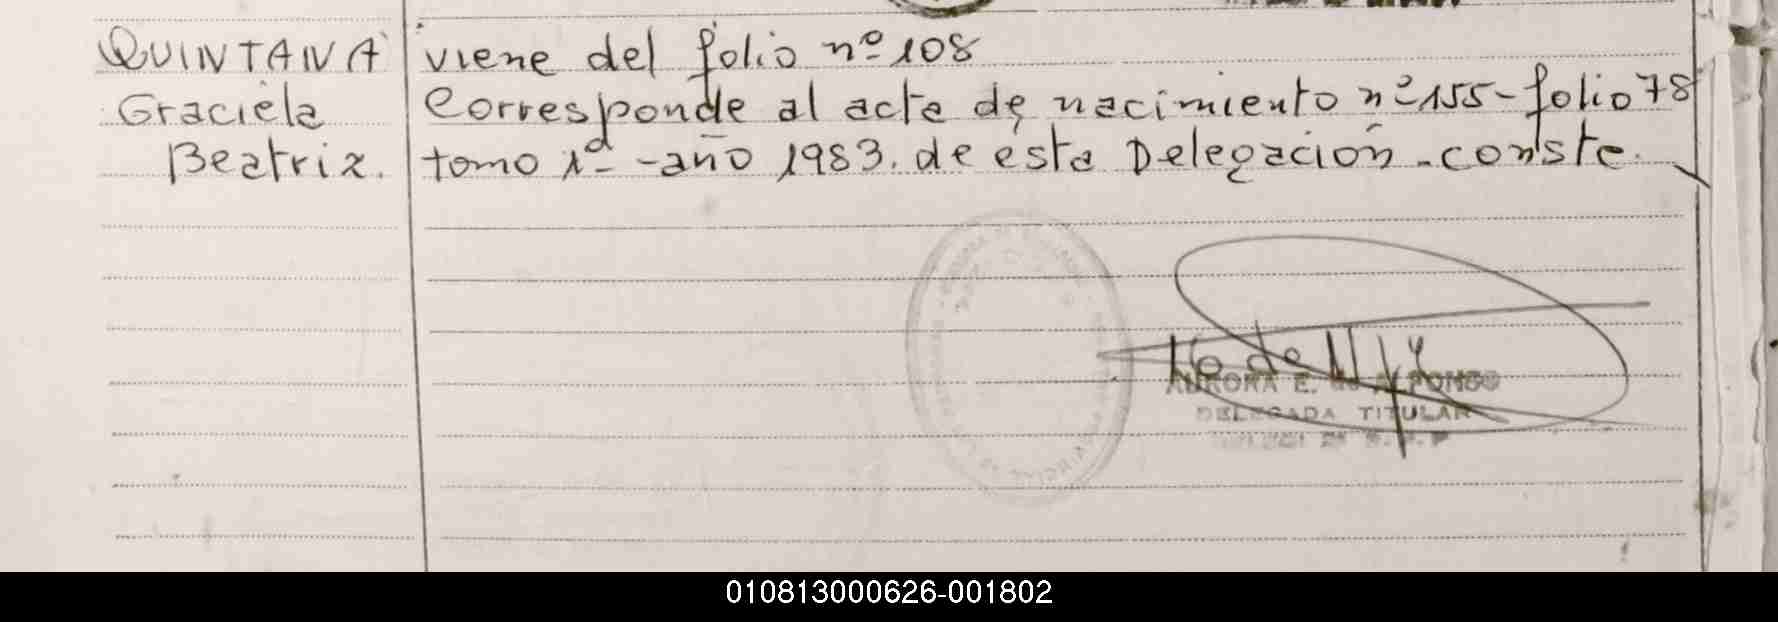 QUINTANA viene del folio nº 108
Graciela Corresponde al acta de nacimiento nº 155 - folio 78
Beatriz. tomo 1º - año 1983. de esta Delegación - conste.
AURORA E. de ALFONSO
DELEGADA TITULAR
010813000626-001802